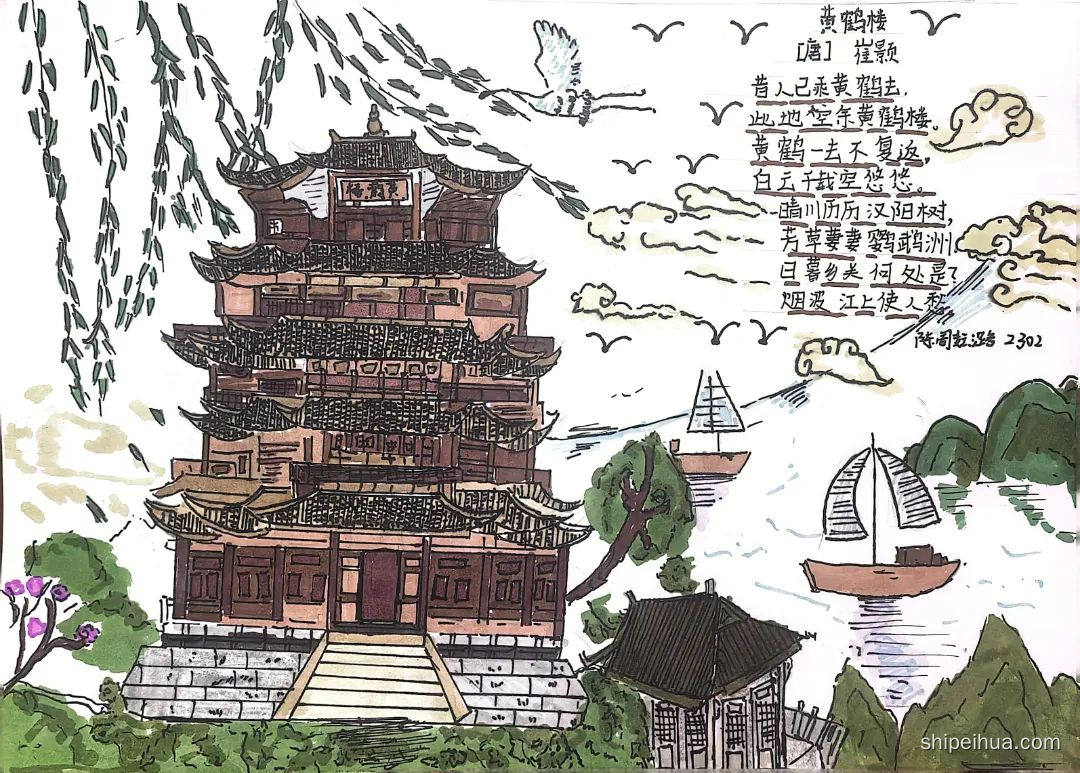 黄鹤楼
[唐] 崔颢
昔人已乘黄鹤去,
此地空余黄鹤楼。
黄鹤一去不复返,
白云千载空悠悠。
晴川历历汉阳树,
芳草萋萋鹦鹉洲
日暮乡关何处是?
烟波江上使人愁。
2302
黄鹤楼
shipeihua.com